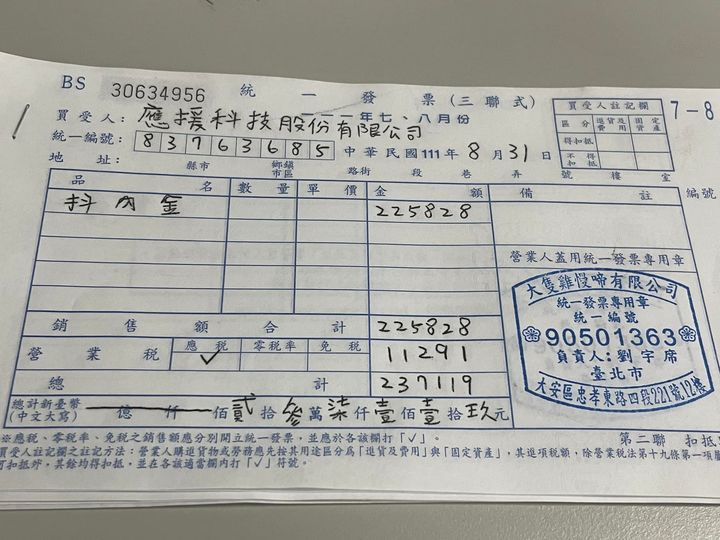 BS 30634956 統一發票(三聯式)
一一一年七、八月份
買受人: 應援科技股份有限公司
統一編號: 83763685 中華民國111年8月31日
地址: 縣市 鄉鎮市區 路街 段 巷 弄 號 樓 室
買受人註記欄
區分 進貨及費用 固定資產
得扣抵
不得扣抵
7-8
編號
品名 數量 單價 金額 備註
抖內金 225828
銷售額合計 225828
營業稅 應稅 零稅率 免稅 11291
✓
總計 237119
總計新臺幣(中文大寫) 億 仟 佰貳拾參萬柒仟壹佰壹拾玖元
營業人蓋用統一發票專用章
大隻雞慢啼有限公司
統一發票專用章
統一編號
90501363
負責人:劉宇席
臺北市
大安區忠孝東路四段221號12樓
※應稅、零稅率、免稅之銷售額應分別開立統一發票,並應於各該欄打「✓」。
第二聯 扣抵
買受人註記欄之註記方法:營業人購進貨物或勞務應先按其用途區分為「進貨及費用」與「固定資產」,其進項稅額,除營業稅法第十九條第一項屬
可扣抵外,其餘均得扣抵,並在各該適當欄內打「✓」符號。